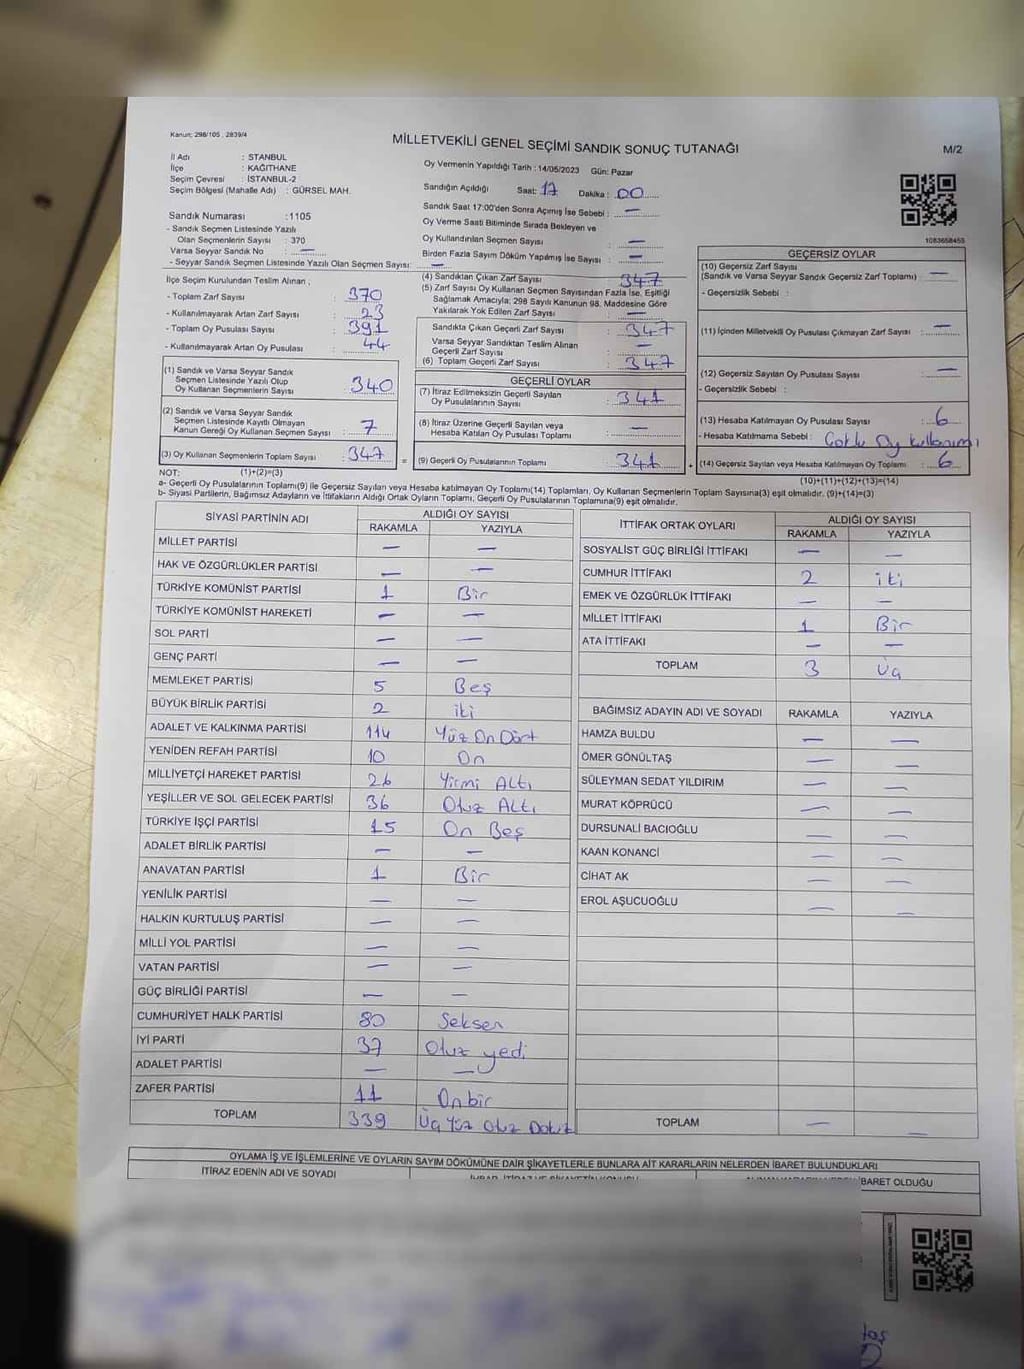 Kanun: 298/105 , 2839/4
MİLLETVEKİLİ GENEL SEÇİMİ SANDIK SONUÇ TUTANAĞI
M/2
İl Adı : STANBUL
İlçe : KAĞITHANE
Seçim Çevresi : İSTANBUL-2
Seçim Bölgesi (Mahalle Adı) : GÜRSEL MAH.
Oy Vermenin Yapıldığı Tarih : 14/05/2023 Gün: Pazar
Sandığın Açıldığı Saat: 17 Dakika : 00
Sandık Saat 17:00'den Sonra Açımış İse Sebebi : —
Oy Verme Saati Bitiminde Sırada Bekleyen ve
Oy Kullandırılan Seçmen Sayısı : —
Birden Fazla Sayım Döküm Yapılmış İse Sayısı : —
1083658455
Sandık Numarası :1105
- Sandık Seçmen Listesinde Yazılı
Olan Seçmenlerin Sayısı : 370
Varsa Seyyar Sandık No : —
- Seyyar Sandık Seçmen Listesinde Yazılı Olan Seçmen Sayısı: —
İlçe Seçim Kurulundan Teslim Alınan ;
- Toplam Zarf Sayısı : 370
- Kullanılmayarak Artan Zarf Sayısı : 23
- Toplam Oy Pusulası Sayısı : 391
- Kullanılmayarak Artan Oy Pusulası : 44
(1) Sandık ve Varsa Seyyar Sandık
Seçmen Listesinde Yazılı Olup
Oy Kullanan Seçmenlerin Sayısı : 340
(2) Sandık ve Varsa Seyyar Sandık
Seçmen Listesinde Kayıtlı Olmayan
Kanun Gereği Oy Kullanan Seçmen Sayısı : 7
(3) Oy Kullanan Seçmenlerin Toplam Sayısı : 347
(4) Sandıktan Çıkan Zarf Sayısı : 347
(5) Zarf Sayısı Oy Kullanan Seçmen Sayısından Fazla İse, Eşitliği
Sağlamak Amacıyla; 298 Sayılı Kanunun 98. Maddesine Göre
Yakılarak Yok Edilen Zarf Sayısı : —
Sandıkta Çıkan Geçerli Zarf Sayısı : 347
Varsa Seyyar Sandıktan Teslim Alınan
Geçerli Zarf Sayısı : —
(6) Toplam Geçerli Zarf Sayısı : 347
GEÇERLİ OYLAR
(7) İtiraz Edilmeksizin Geçerli Sayılan
Oy Pusulalarının Sayısı : 341
(8) İtiraz Üzerine Geçerli Sayılan veya
Hesaba Katılan Oy Pusulası Toplamı : —
= (9) Geçerli Oy Pusulalarının Toplamı : 341 +
GEÇERSİZ OYLAR
(10) Geçersiz Zarf Sayısı
(Sandık ve Varsa Seyyar Sandık Geçersiz Zarf Toplamı) : —
- Geçersizlik Sebebi :
(11) İçinden Milletvekili Oy Pusulası Çıkmayan Zarf Sayısı : —
(12) Geçersiz Sayılan Oy Pusulası Sayısı : —
- Geçersizlik Sebebi :
(13) Hesaba Katılmayan Oy Pusulası Sayısı : 6
- Hesaba Katılmama Sebebi : Çoklu Oy kullanımı
(14) Geçersiz Sayılan veya Hesaba Katılmayan Oy Toplamı : 6
NOT: (1)+(2)=(3) (10)+(11)+(12)+(13)=(14)
a- Geçerli Oy Pusulalarının Toplamı(9) ile Geçersiz Sayılan veya Hesaba Katılmayan Oy Toplamı(14) Toplamları, Oy Kullanan Seçmenlerin Toplam Sayısına(3) eşit olmalıdır. (9)+(14)=(3)
b- Siyasi Partilerin, Bağımsız Adayların ve İttifakların Aldığı Ortak Oyların Toplamı, Geçerli Oy Pusulalarının Toplamına(9) eşit olmalıdır.
SİYASİ PARTİNİN ADI ALDIĞI OY SAYISI
RAKAMLA YAZIYLA
MİLLET PARTİSİ — —
HAK VE ÖZGÜRLÜKLER PARTİSİ — —
TÜRKİYE KOMÜNİST PARTİSİ 1 Bir
TÜRKİYE KOMÜNİST HAREKETİ — —
SOL PARTİ — —
GENÇ PARTİ — —
MEMLEKET PARTİSİ 5 Beş
BÜYÜK BİRLİK PARTİSİ 2 iki
ADALET VE KALKINMA PARTİSİ 114 Yüz On Dört
YENİDEN REFAH PARTİSİ 10 On
MİLLİYETÇİ HAREKET PARTİSİ 26 Yirmi Altı
YEŞİLLER VE SOL GELECEK PARTİSİ 36 Otuz Altı
TÜRKİYE İŞÇİ PARTİSİ 15 On Beş
ADALET BİRLİK PARTİSİ — —
ANAVATAN PARTİSİ 1 Bir
YENİLİK PARTİSİ — —
HALKIN KURTULUŞ PARTİSİ — —
MİLLİ YOL PARTİSİ — —
VATAN PARTİSİ — —
GÜÇ BİRLİĞİ PARTİSİ — —
CUMHURİYET HALK PARTİSİ 80 Seksen
İYİ PARTİ 37 Otuz yedi
ADALET PARTİSİ — —
ZAFER PARTİSİ 11 Onbir
TOPLAM 339 Üç Yüz Otuz Dokuz
İTTİFAK ORTAK OYLARI ALDIĞI OY SAYISI
RAKAMLA YAZIYLA
SOSYALİST GÜÇ BİRLİĞİ İTTİFAKI — —
CUMHUR İTTİFAKI 2 iki
EMEK VE ÖZGÜRLÜK İTTİFAKI — —
MİLLET İTTİFAKI 1 Bir
ATA İTTİFAKI — —
TOPLAM 3 Üç
BAĞIMSIZ ADAYIN ADI VE SOYADI RAKAMLA YAZIYLA
HAMZA BULDU — —
ÖMER GÖNÜLTAŞ — —
SÜLEYMAN SEDAT YILDIRIM — —
MURAT KÖPRÜCÜ — —
DURSUNALİ BACIOĞLU — —
KAAN KONANCİ — —
CİHAT AK — —
EROL AŞUCUOĞLU — —
TOPLAM — —
OYLAMA İŞ VE İŞLEMLERİNE VE OYLARIN SAYIM DÖKÜMÜNE DAİR ŞİKAYETLERLE BUNLARA AİT KARARLARIN NELERDEN İBARET BULUNDUKLARI
İTİRAZ EDENİN ADI VE SOYADI
İBARET OLDUĞU